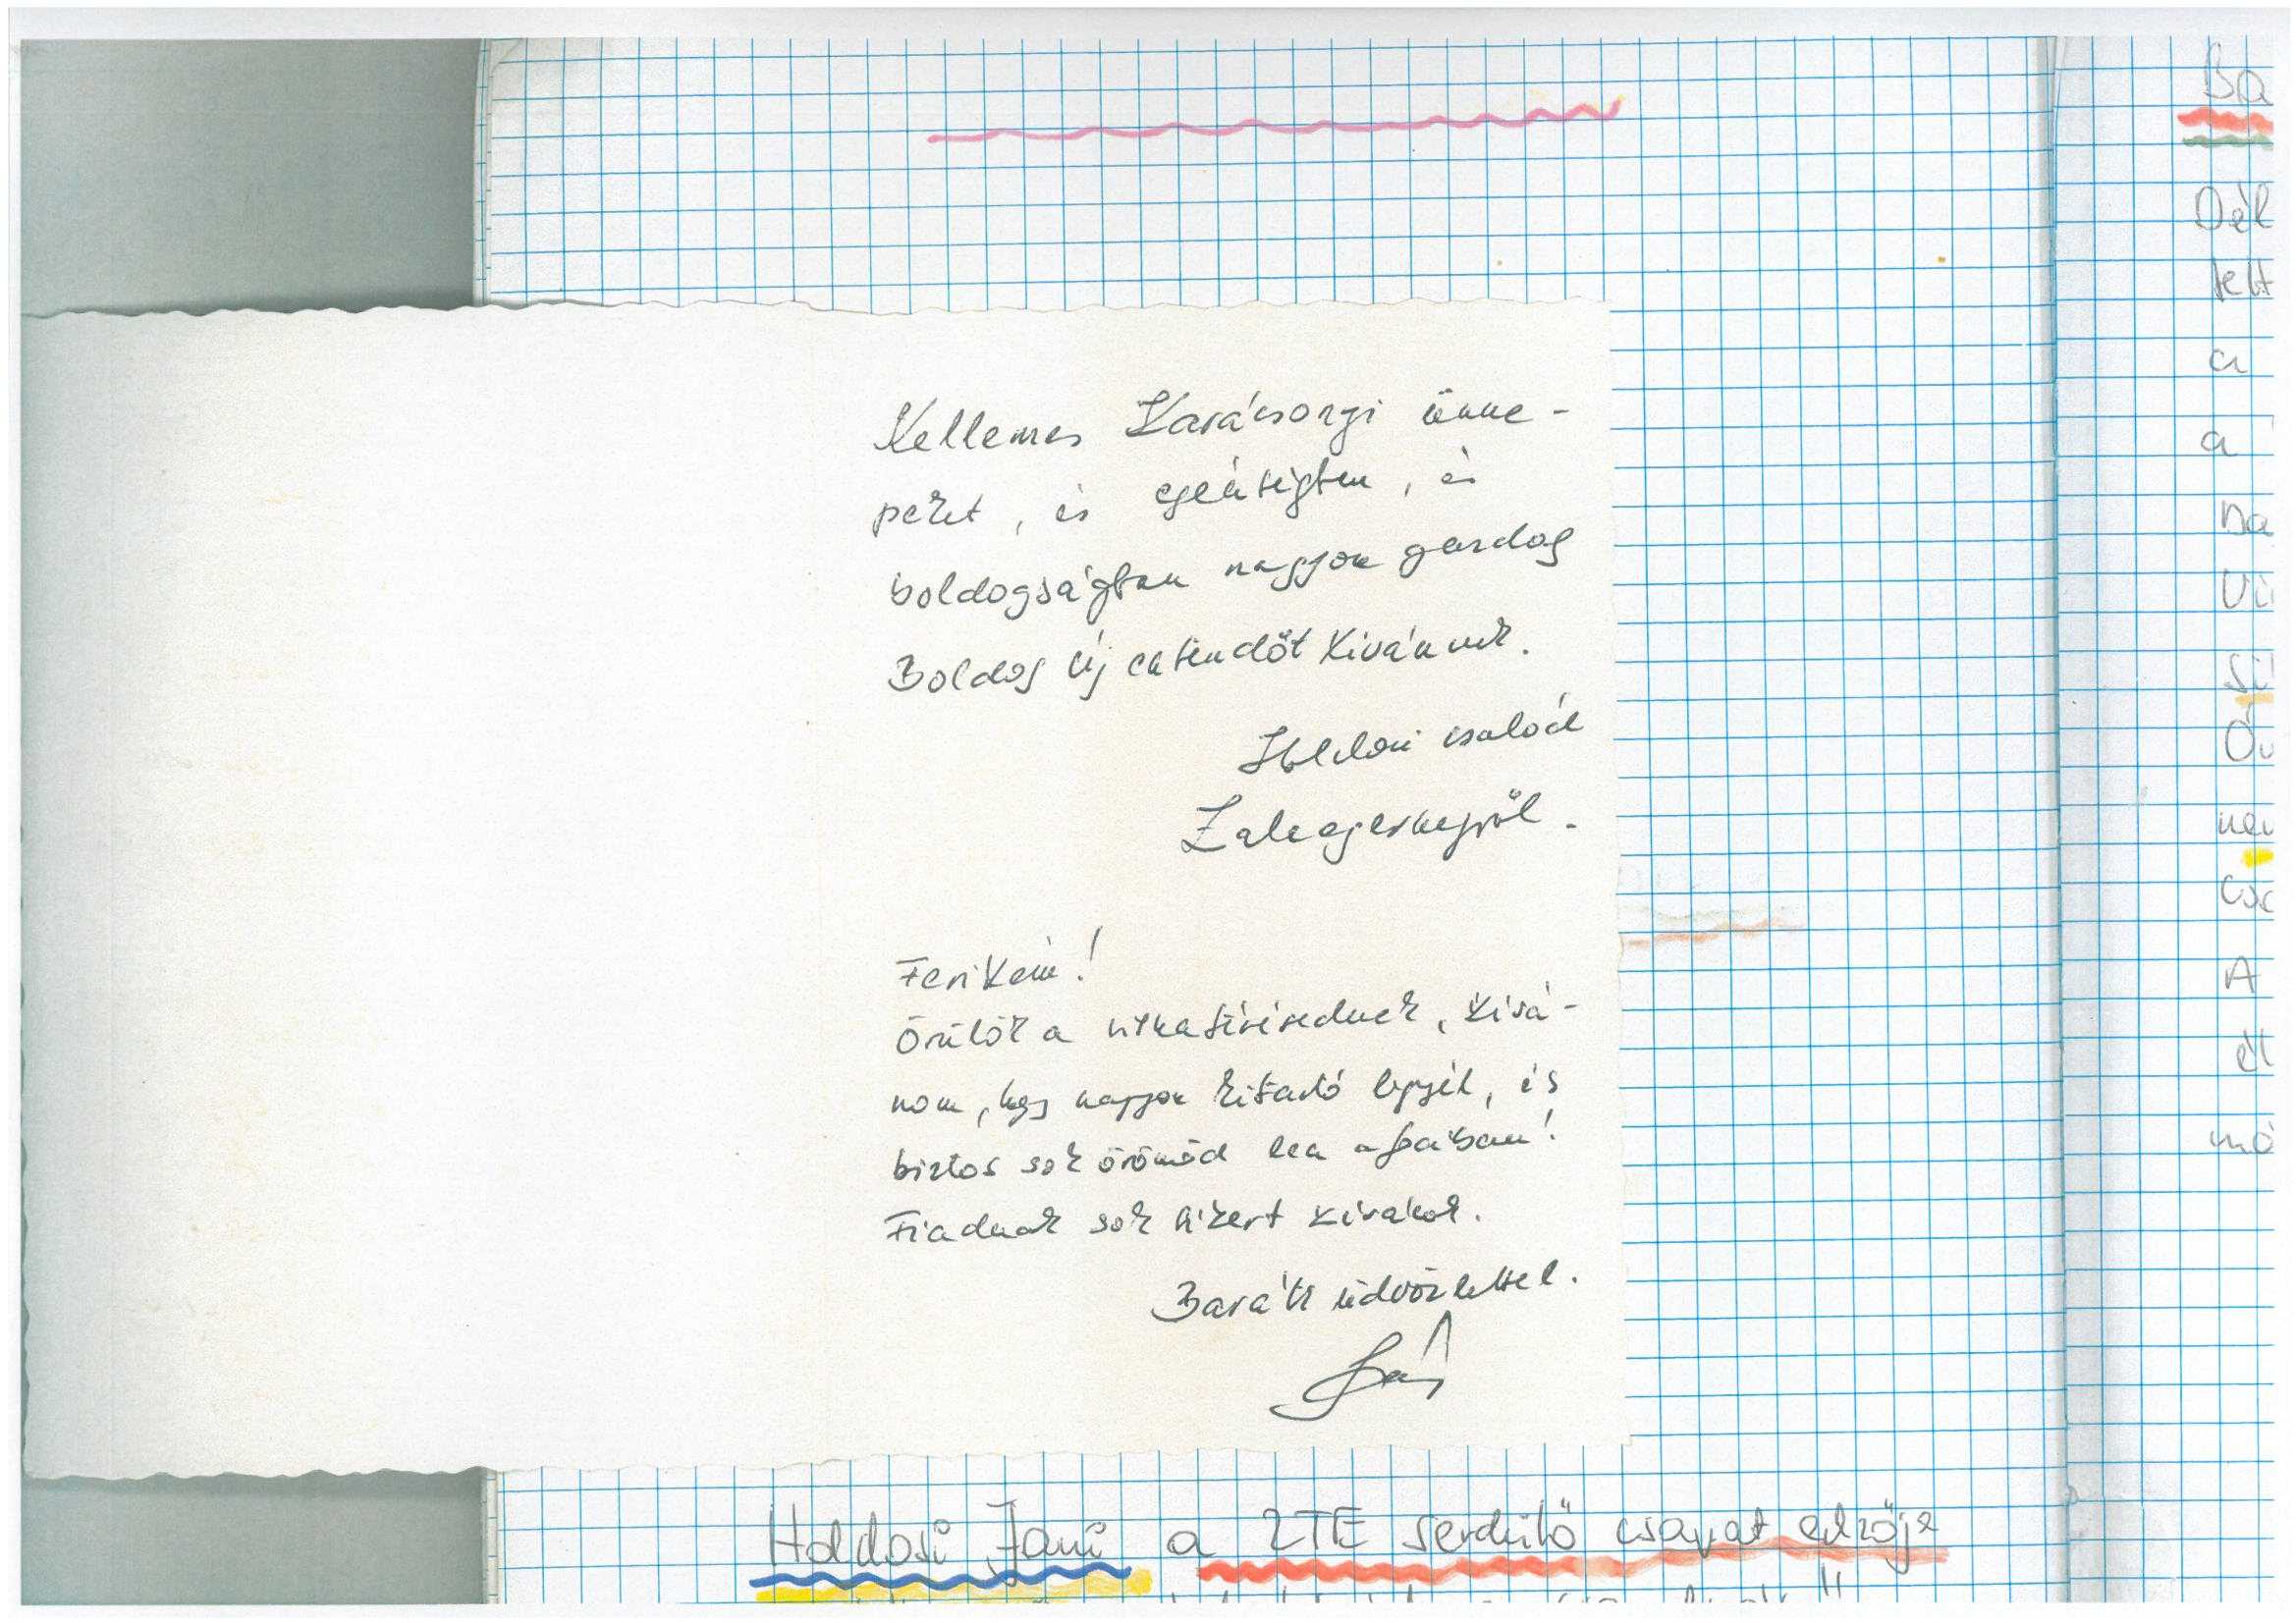 Kellemes Karácsonyi ünne-
peket, és egészségben, és
boldogságban nagyon gazdag
Boldog új esztendőt kívánnak.
Holdosi család
Zalaegerszegről.
Ferikém!
Örülök a
nom, hogy nagyon kitartó legyél, és
biztos sok örömöd lesz a
Fiadnak sok sikert kívánok.
Baráti üdvözlettel.
Holdosi Jani a ZTE serdülő csapat edzője
Ba
Dél
telt
a
a
na
Vi
Si
nem
A
él